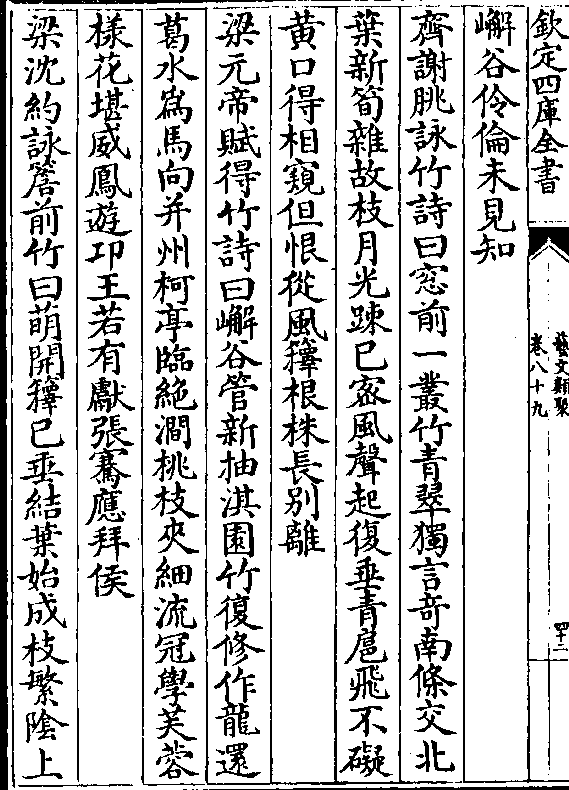 欽定四庫全書
藝文類聚
卷八十九
四十二
嶰谷伶倫未見知
齊謝朓詠竹詩曰窓前一叢竹青翠獨言奇南條交北
葉新筍雜故枝月光踈已宻風聲起復垂青扈飛不礙
黄口得相窺但恨從風籜根株長别離
梁元帝賦得竹詩曰嶰谷管新抽淇園竹復修作龍還
葛水爲馬向并州柯亭臨絶澗桃枝夾細流冠學芙蓉
様花堪威鳳遊卭王若有獻張騫應拜侯
梁沈約詠簷前竹曰萌開籜已垂結葉始成枝繁隂上